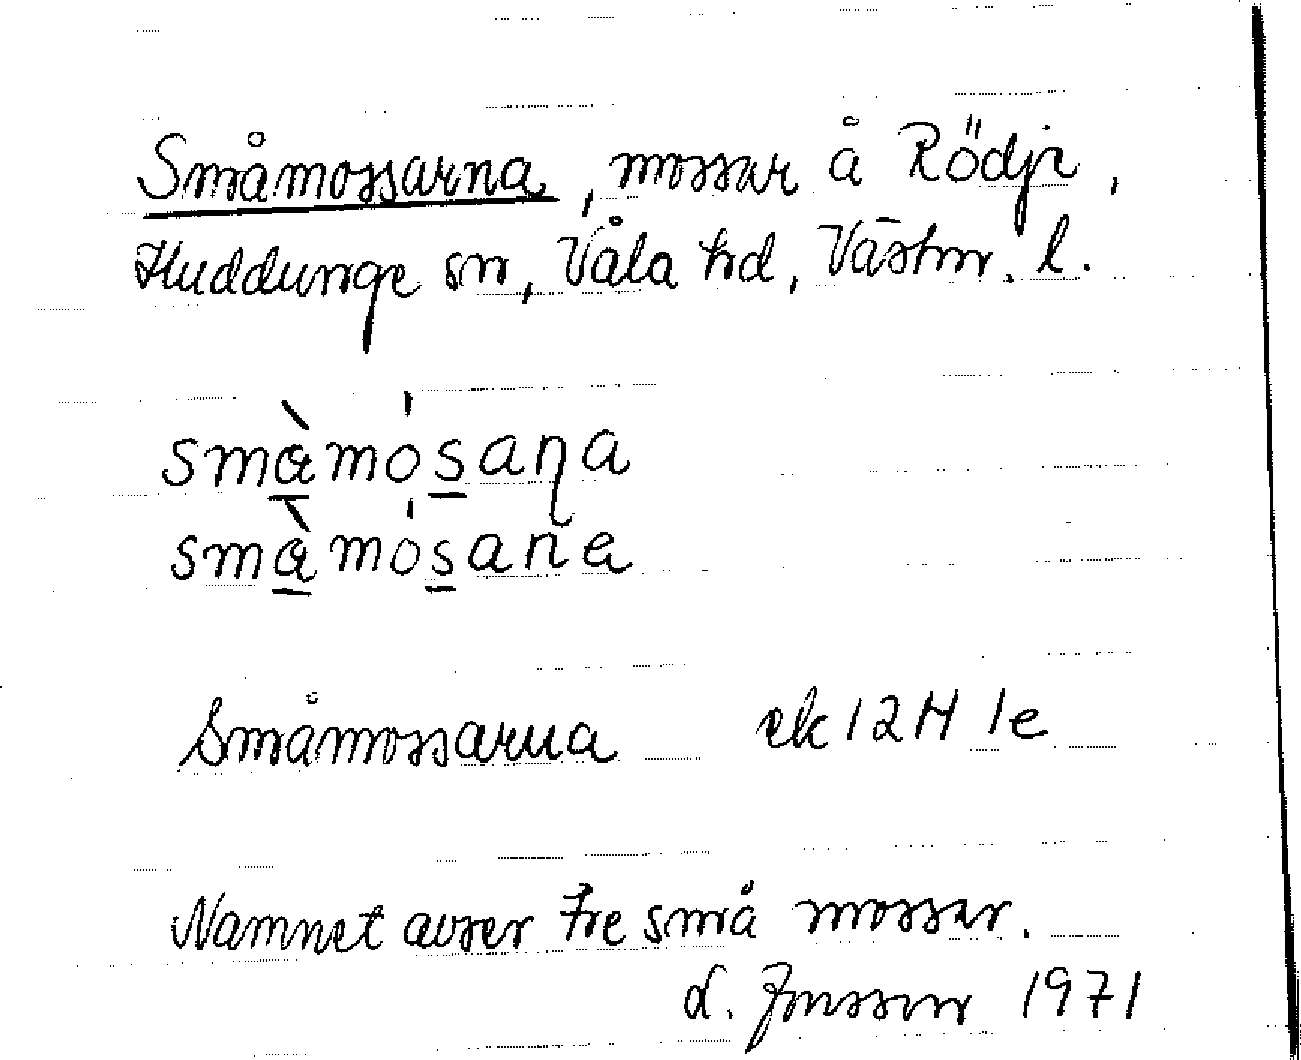 Småmossarna, mossar å Rödjr,
Huddunge sn, Våla hd, Västm. l.
smàmósaṇa
smàmósane
Småmossarna ek 12H 1e
Namnet avser tre små mossar.
L. Jonsson 1971